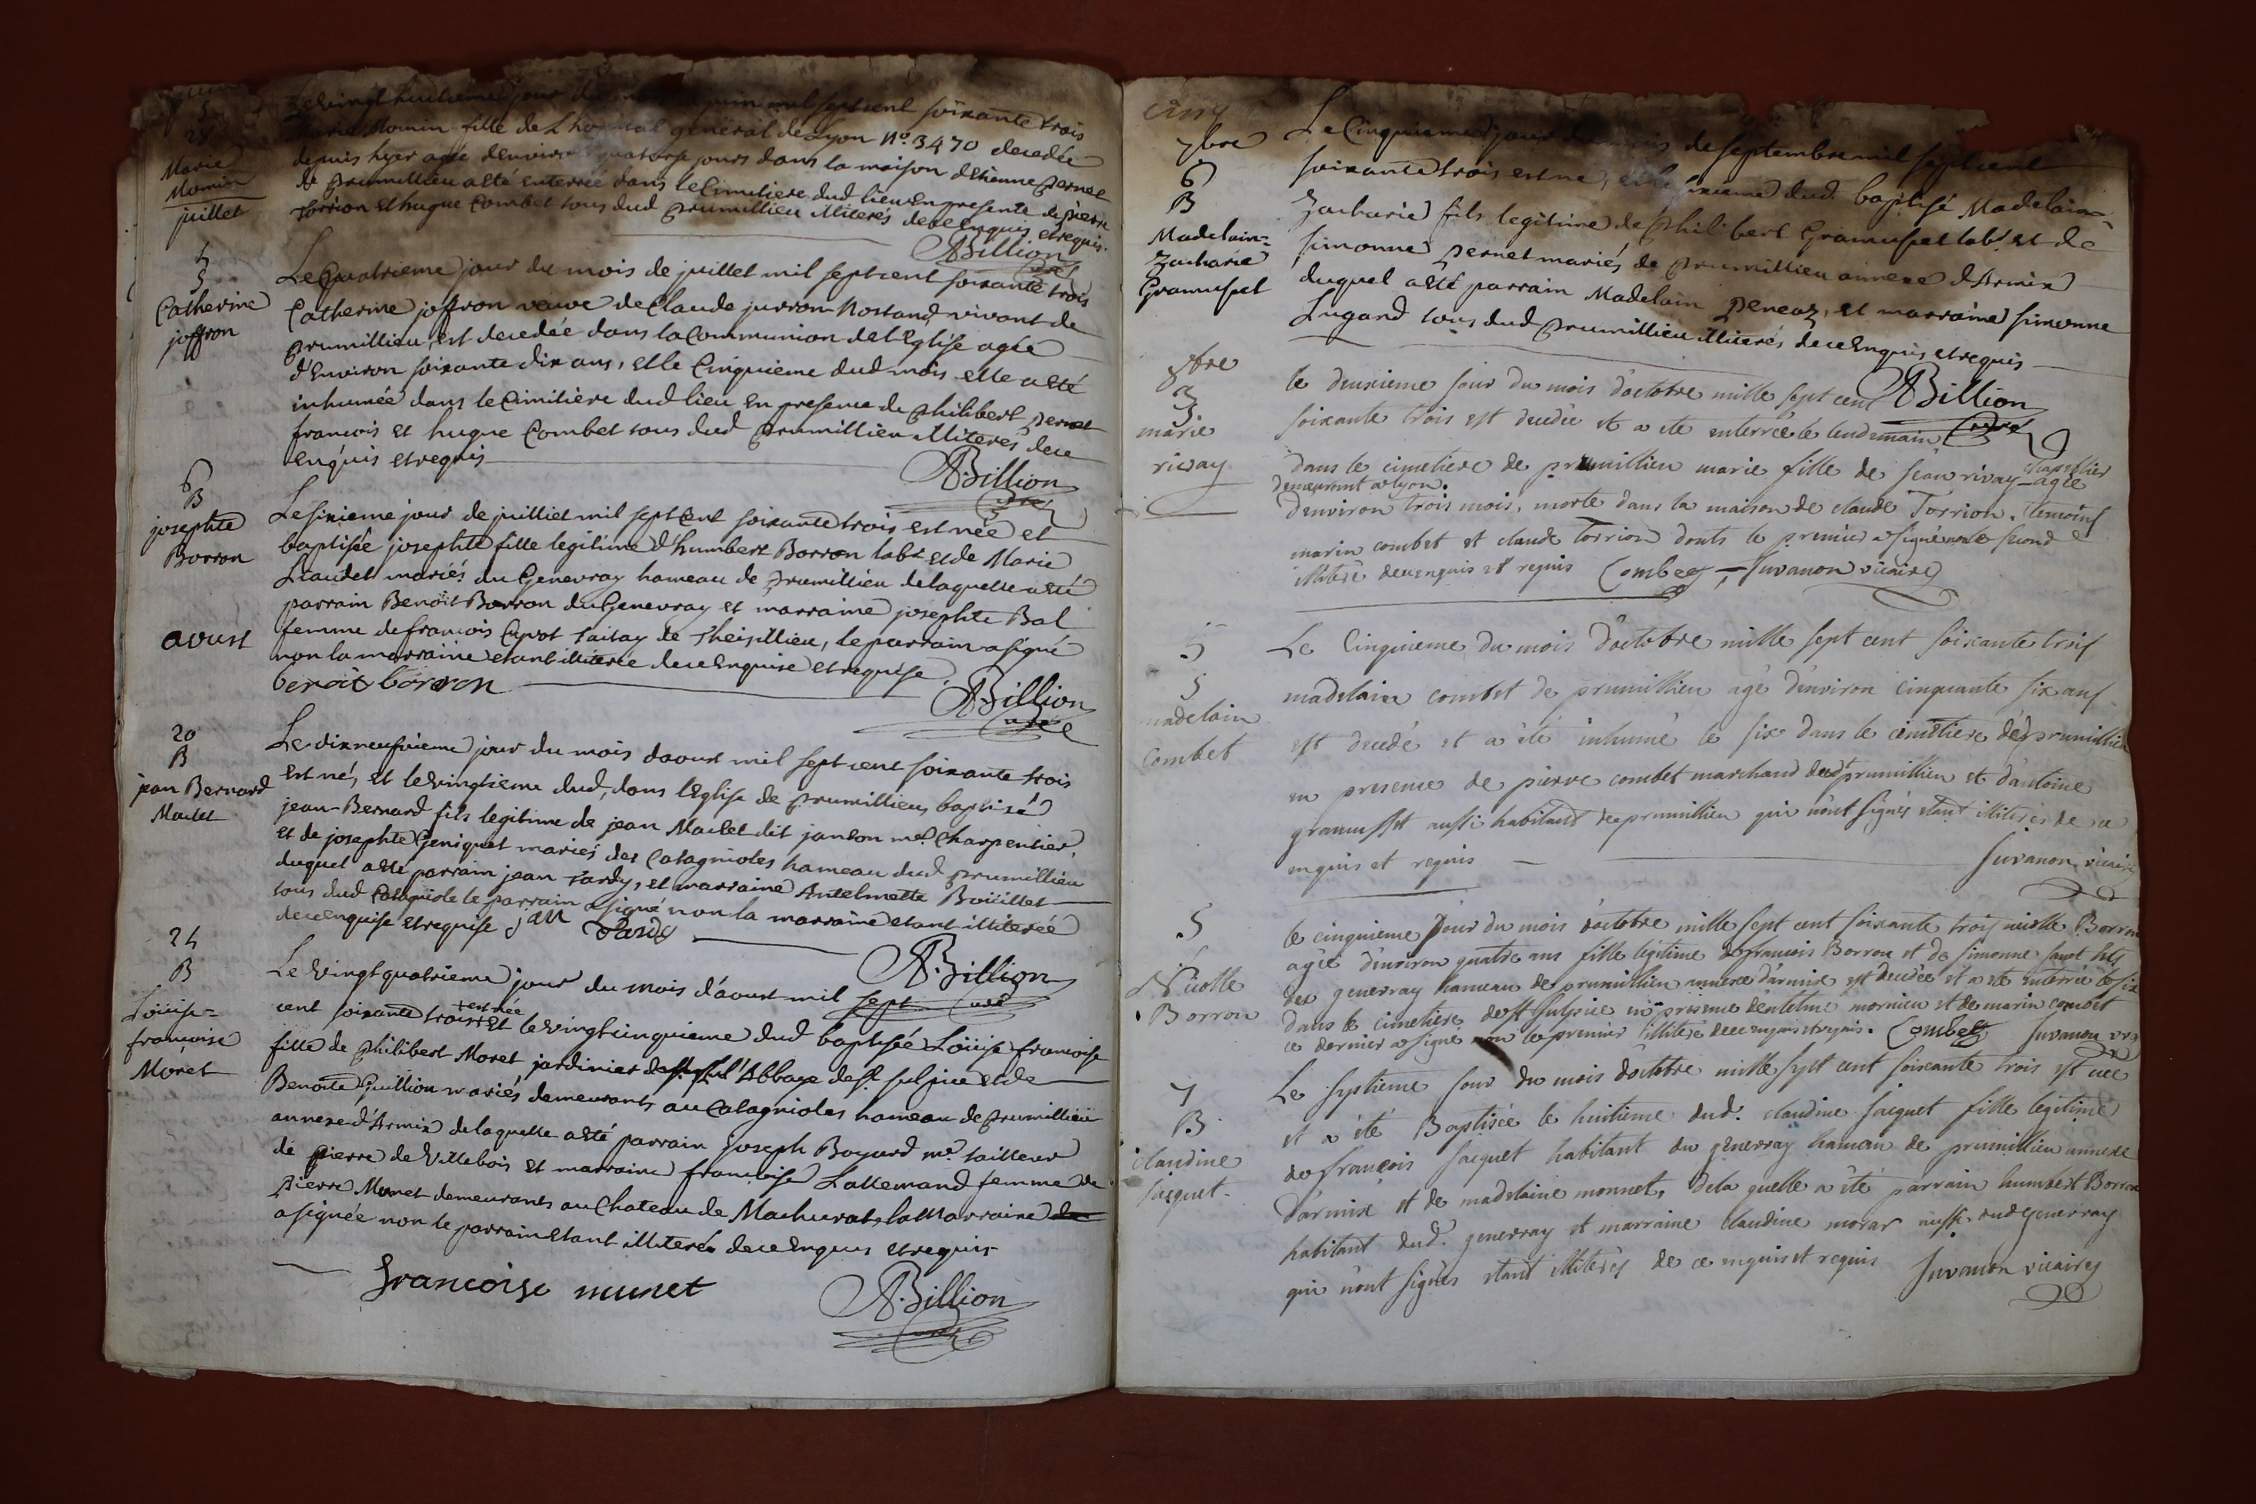 28
Marie
Momin
juillet
Le vingt huitieme jour du juin mil sept cent soixante trois
Marie Momin fille de L'hopital general de Lyon N.o 3470 decedée
depuis hyer agée d'environ quatorze jours dans la maison d'Etienne pernet
de prumillieu a eté enterrée dans le Cimetiere dud lieu en presence de pierre
torrion et hugue Combet tous dud prumillieu illiterés de ce enquis et requis.
ABillion
curé
4
5
Catherine
joffron
Le Quatrieme jour du mois de juillet mil sept cent soixante trois
Catherine joffron veuve de Claude jurron Nostand, vivant de
prumillieu, est decedée dans la Communion de l'Eglise agée
d'Environ soixante dix ans, et le Cinquieme dud mois elle a eté
inhumée dans le Cimitière dud lieu en presence de philibert pernet
francois et hugue Combet tous dud prumillieu illiterés de ce
enquis et requis
ABillion
curé
6
B
josephte
Borron
Le sixieme jour de juilliet mil sept Cent soixante trois est née et
baptisée josephte fille legitime d'humbert Borron labr et de Marie
Liaudet mariés du Genevray hameau de prumillieu de laquelle a eté
parrain Benoit Borron du Genevray et marraine josephte Bal
femme de francois Cyvot taitay de Theisillieu, le parrain a signé
non la marraine etant illiterée de ce Enquise et requise
benoit borron
ABillion
curé
aoust
20
B
jean Bernard
Maclet
Le dixneufvieme jour du mois daoust mil sept cent soixante trois
est né, et le vingtieme dud, dans l'Eglise de prumillieu, baptisé
jean-Bernard fils legitime de jean Maclet dit janton me. Charpentier,
et de josephte Geniquet mariés des Catagnoles hameau dud prumillieu
duquel a eté parrain jean tardy, et marraine Antelmette Boüillet
tous dud Catagniole le parrain a signé non la marraine etant illiterée
de ce enquise et requise jan tardy
A.Billion
curé
24
B
Loüise=
francoise
Moret
Le vingt quatrieme jour du mois d'aoust mil sept
cent soixante trois + est née et le vingt cinquieme dud baptisée Loüise francoise
fille de philibert Moret jardinier de l'Abbaye de st. sulpice et de
Benoite Guillion mariés demeurants au Catagnioles hameau de prumillieu
annexe d'Armix de laquelle a eté parrain joseph Bogard me. tailleur
de pierre de Villebois et marraine francoise Lallemand femme de
pierre Munet demeurants au Chateau de Machurat, la Marraine
a signée non le parrain etant illiteré de ce Enquis et requis
francoise munet
A.Billion
curé
7bre
6
B
Madelain=
Zacharie
Gramuset
Le Cinquieme jour du mois de septembre mil sept cent
soixante trois est né, et le sixieme dud. baptisé Madelain
Zacharie fils legitime de philibert Gramuset labr. et de
simonne pernet mariés de prumillieu annexe d'Armix
duquel a eté parrain Madelain peneaz, et marraine simonne
Lugand tous dud prumillieu illiterés de ce Enquis et requis
ABillion
curé
8bre
3
marie
rivay
le deuxieme jour du mois d'octobre mille sept cent
soixante trois est decedée et a ete enterrée le lendemain
dans le cimetiere de prumillieu marie fille de jean rivay chapellier
demeurant a lyon. agée
d'environ trois mois, morte dans la maison de claude Torrion. temoins
marin combet et claude torrion donts le premier a signé non le second
illiteré de ce enquis et requis Combet, Juvanon vicaire
5
5
madelain
Combet
Le Cinquieme du mois d'octobre mille sept cent soixante trois
madelain combet de prumillieu agé d'environ cinquante six ans
est decedé et a été inhumé le six dans le cimetiere de prumillieu
en presence de pierre combet marchand dud prumillieu et d'antoine
gramusset aussi habitant de prumillieu qui n'ont signés etant illiterés de ce
enquis et requis
Juvanon vicaire
5
Nicolle
Borron
le cinquieme jour du mois d'octobre mille sept cent soixante trois nicolle Borron
agée d'environ quatre ans fille legitime de francois Borron et de simonne
du genevray hameau de prumillieu annexe d'armix est decedée et a ete enterrée le six
dans le cimetiere de st. Sulpice en presence d'entelme mornieu et de marin combet
ce dernier a signé non le premier illiteré de ce enquis et requis. Combet Juvanon vre
7
B
claudine
Jacquet
Le septieme jour du mois d'octobre mille sept cent soixante trois est née
et a été Baptisée le huitieme dud. claudine jacquet fille legitime
de françois jacquet habitant du genevray hameau de prumillieu annexe
d'armix et de madelaine monnet, de la quelle a été parrain humbert Borron
habitant dud. genevray et marraine claudine morar aussi dud genevray
qui n'ont signés etant illiterés de ce enquis et requis Juvanon vicaire